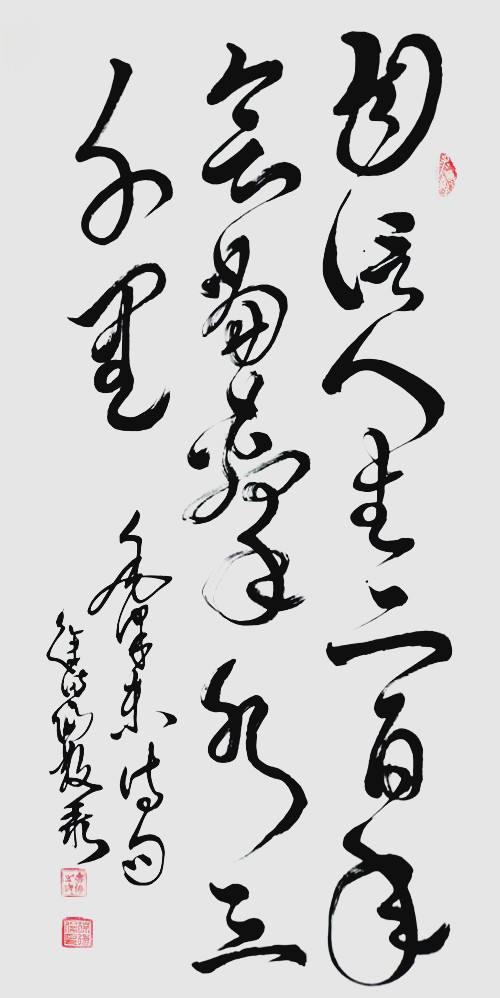 自信人生二百年
会当击水三
千里
毛泽东诗句